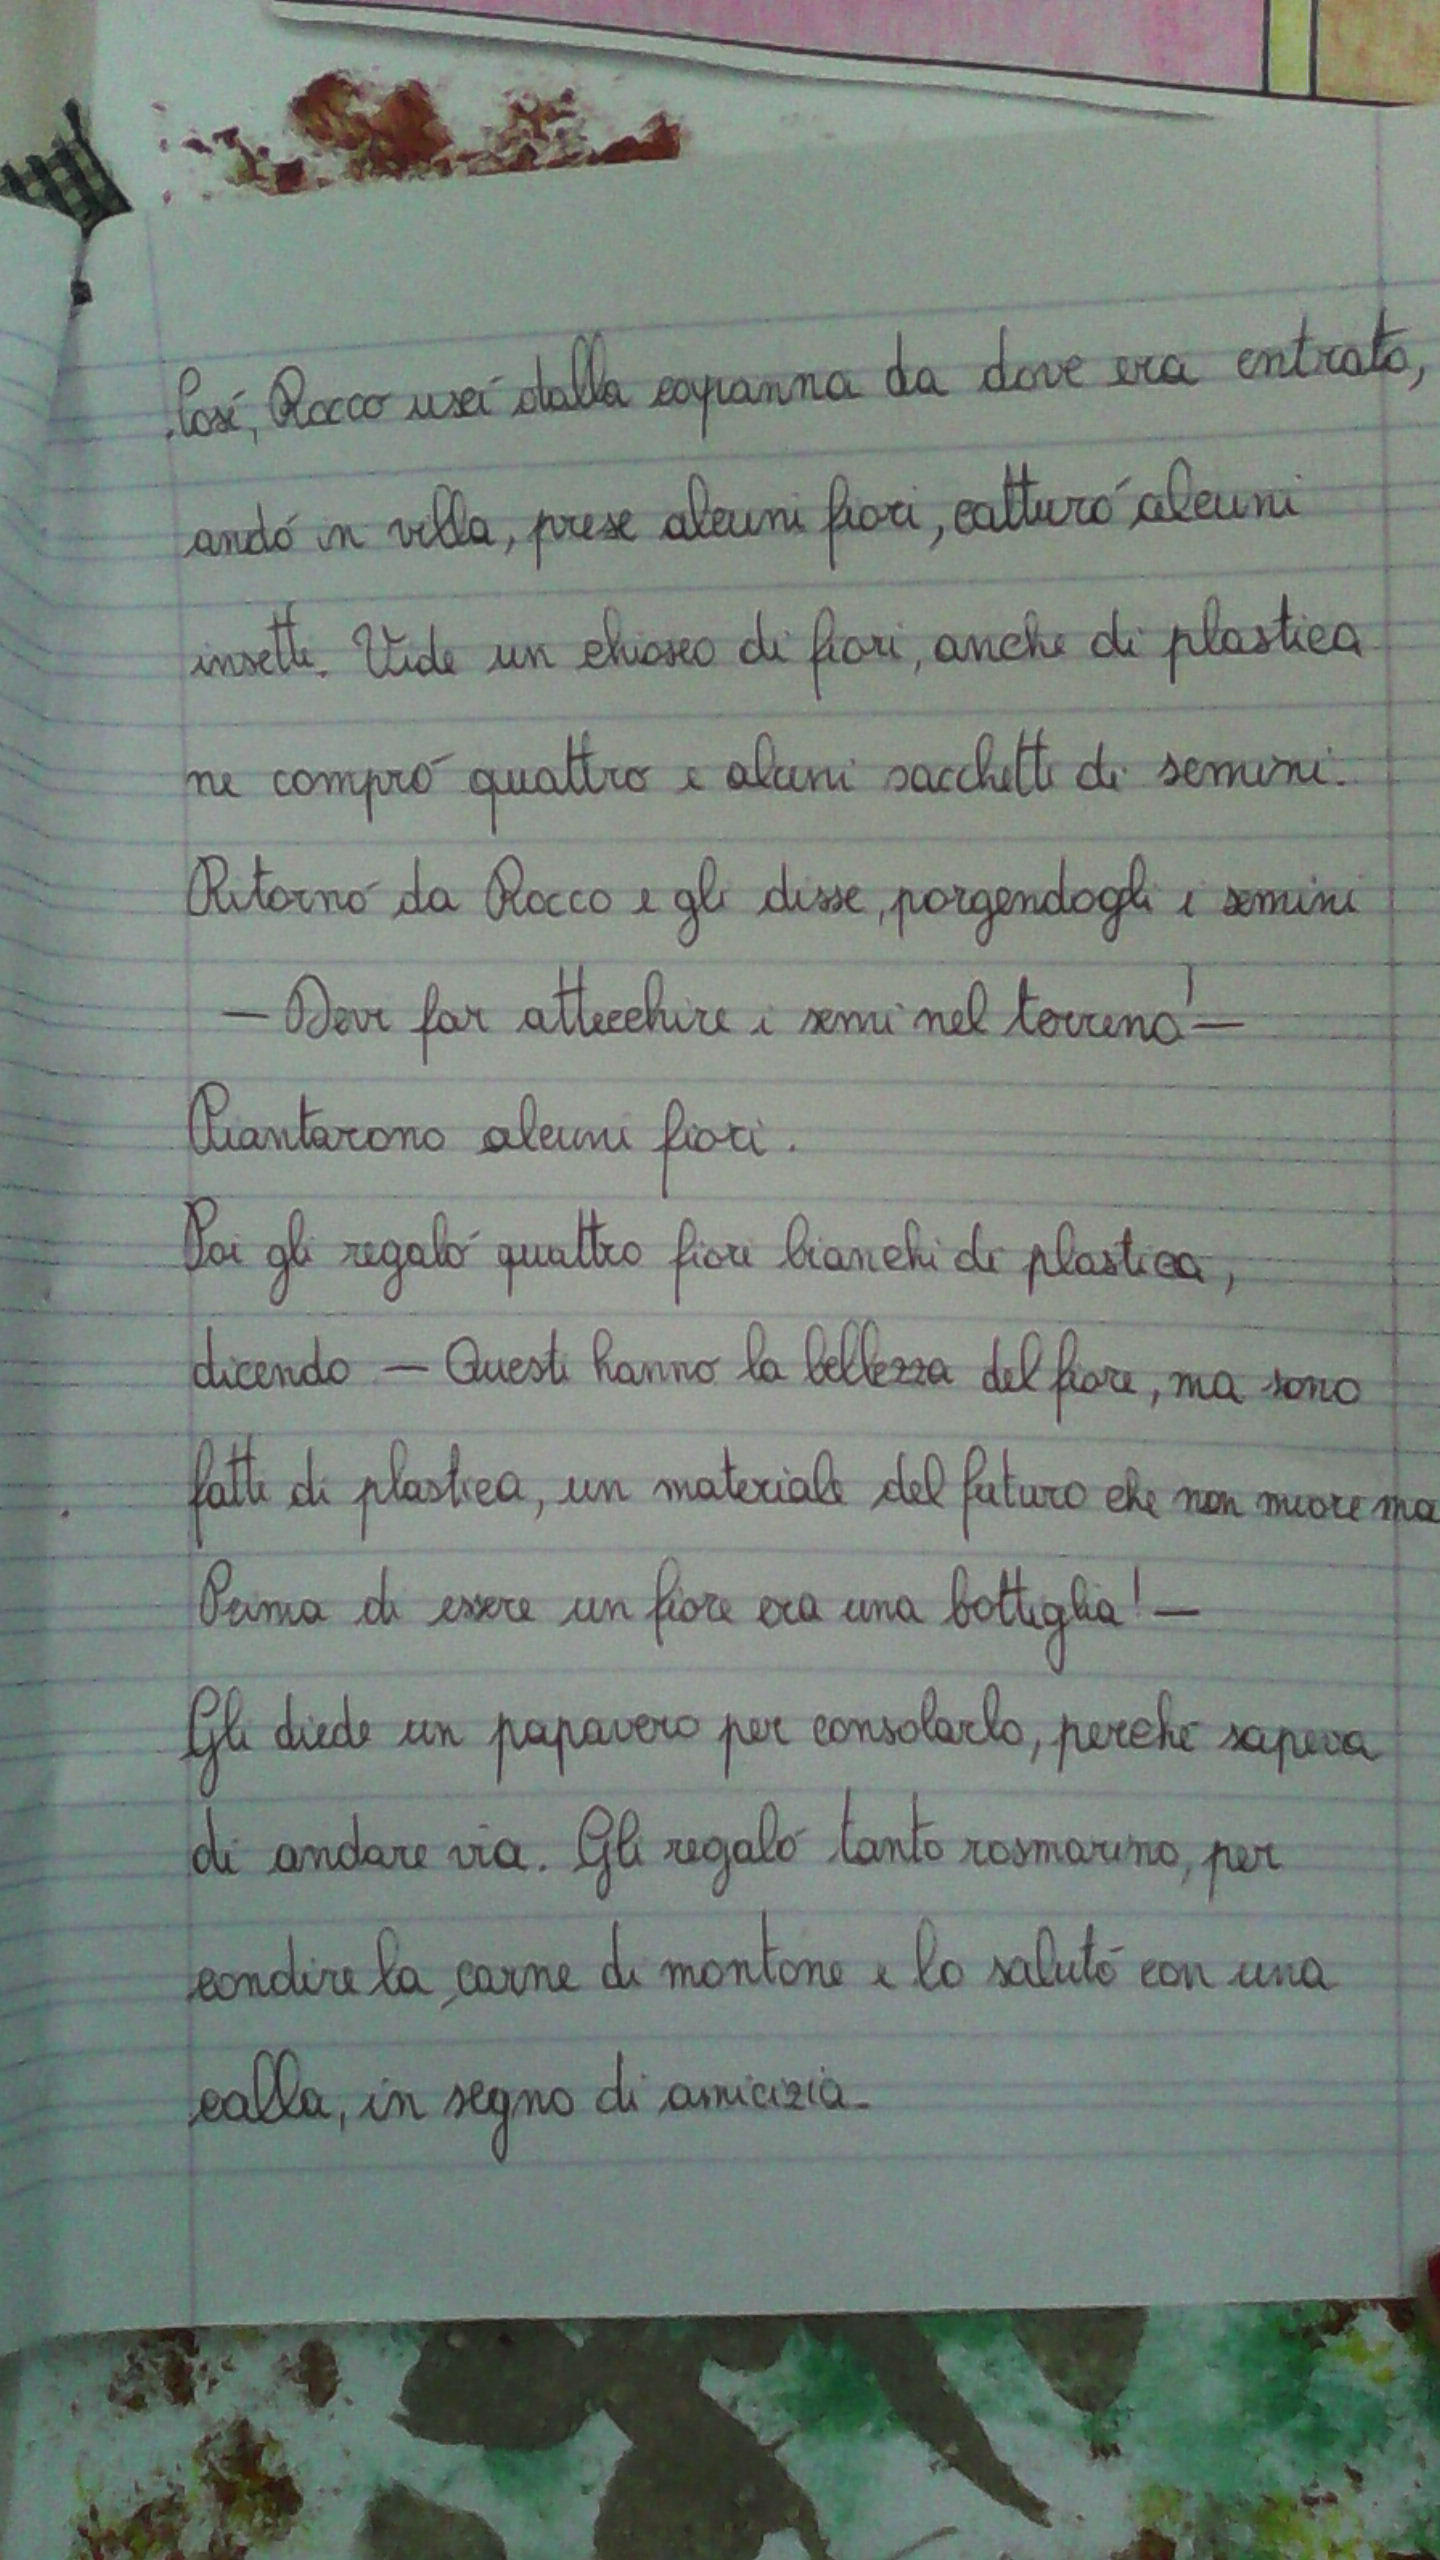 Cosí, Rocco uscí dalla capanna da dove era entrato,
andó in villa, prese alcuni fiori, catturó alcuni
insetti. Vide un chiosco di fiori, anche di plastica
ne compró quattro e alcuni sacchetti di semini.
Ritornó da Rocco e gli disse, porgendogli i semini
— Devi far attecchire i semi nel terreno! —
Piantarono alcuni fiori.
Poi gli regaló quattro fiori bianchi di plastica,
dicendo — Questi hanno la bellezza del fiore, ma sono
fatti di plastica, un materiale del futuro che non muore ma
Prima di essere un fiore era una bottiglia! —
Gli diede un papavero per consolarlo, perché sapeva
di andare via. Gli regaló tanto rosmarino, per
condire la carne di montone e lo salutó con una
calla, in segno di amicizia.